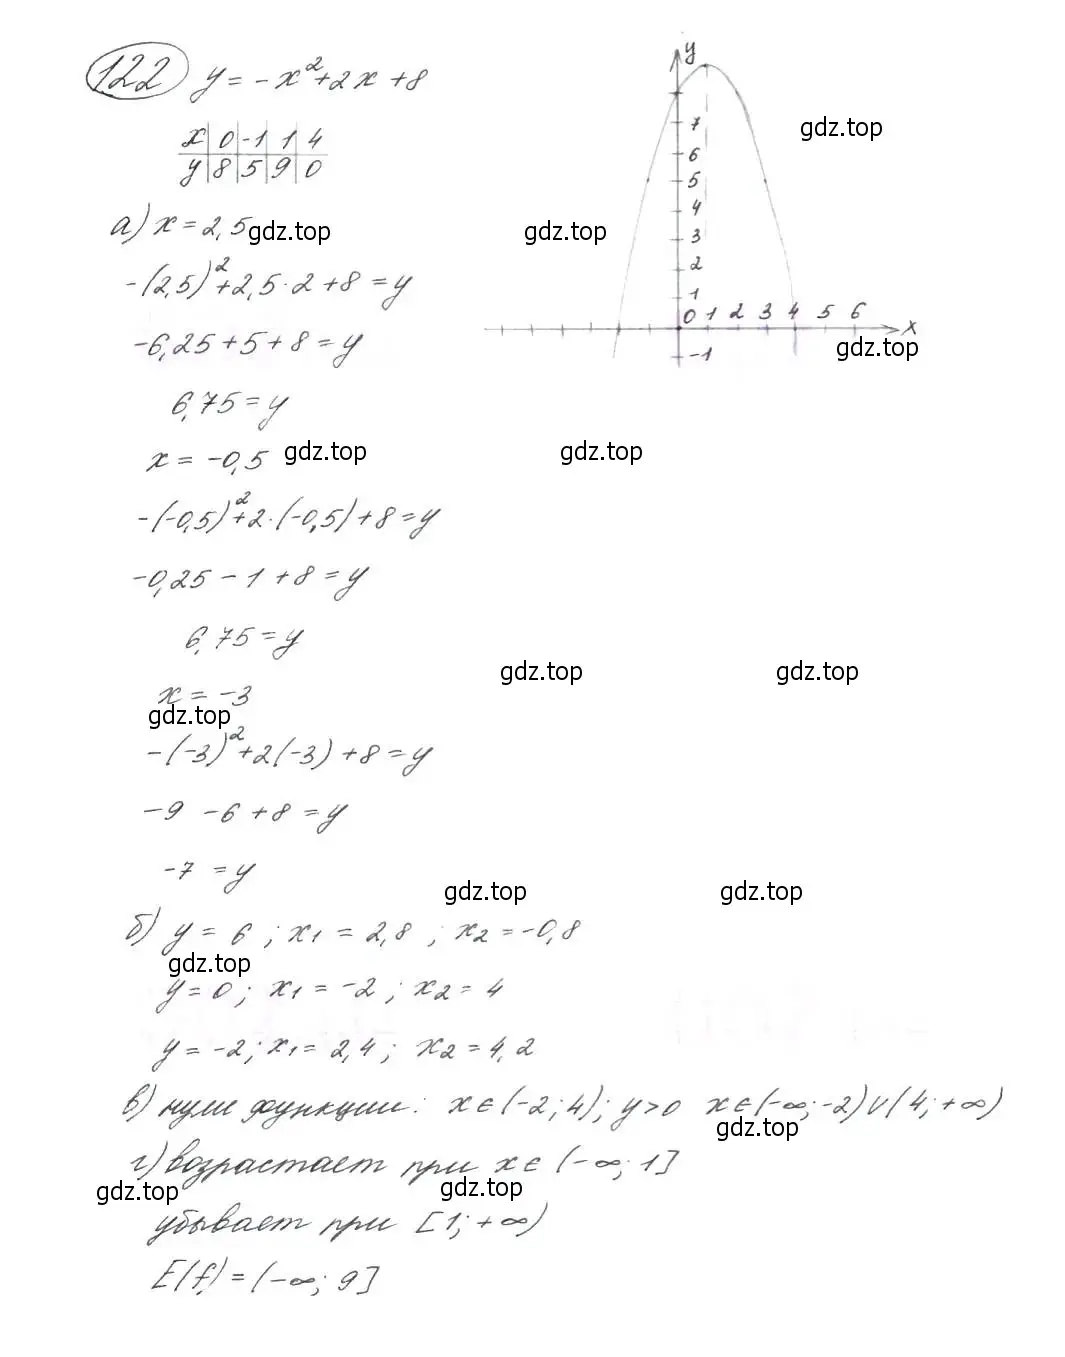 122 y = -x²+2x+8
x 0 -1 1 4
y 8 5 9 0
y
7
6
5
4
3
2
1
0 1 2 3 4 5 6
x
-1
gdz.top
а) x = 2,5
gdz.top gdz.top
-(2,5)²+2,5·2+8=y
-6,25+5+8=y
gdz.top
6,75=y
x = -0,5
gdz.top gdz.top
-(-0,5)²+2·(-0,5)+8=y
-0,25-1+8=y
6,75=y
gdz.top gdz.top
x = -3
gdz.top
-(-3)²+2(-3)+8=y
-9 -6+8=y
-7 =y
gdz.top gdz.top
б) y = 6 ; x1 = 2,8 ; x2=-0,8
gdz.top
y=0; x1 = -2 ; x2 = 4
y = -2; x1= 2,4 ; x2=4,2
в) нули функции: x∈(-2;4); y>0 x∈(-∞;-2)∪(4;+∞)
gdz.top
г) возрастает при x∈ (-∞;1]
gdz.top gdz.top
убывает при [1;+∞)
E(f)=(-∞; 9]